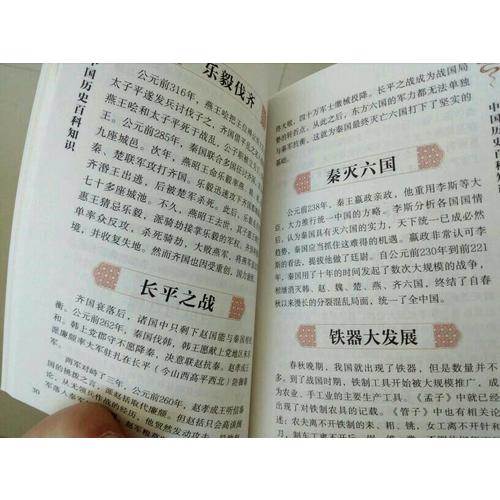 中国历史百科知识
乐毅伐齐
公元前316年，燕王哙把王位
太子平遂发兵讨伐子之，
王哙和太子平死于战乱，
王。公元前285年，秦国联合
九座城邑。次年，燕昭王
秦、楚联军攻打齐国。
齐湣王出逃，后被楚军杀死。
七十多座城池。不久，燕昭王去世，
惠王猜忌乐毅，派骑劫接掌乐毅的军权，
单率众反攻，杀死骑劫，大败燕军，将燕
境，并收复失地。然而齐国也因受重创，国力
长平之战
齐国衰落后，诸国中只剩下赵国能与秦国相抗
衡。公元前262年，秦国伐韩，韩王愿献上党地区求
和。韩上党郡守不愿降秦，决意联赵抗秦。赵孝成王
派廉颇率大军驻扎在长平（今山西高平西北）防御秦
军。
两军对峙了三年，公元前260年，赵孝成王听信秦
国的挑拨之言，派赵括取代廉颇。但赵括只会高谈阔
论，从未领兵作战的经历，他贸然发动攻击，
30
终大败，四十万军士缴械投降。长平之战成为战国局
势的转折点，从此之后，东方六国的军力都无法单独
与秦军抗衡，这就为秦国最终灭亡六国打下了坚实的
基础。
秦灭六国
公元前238年，秦王嬴政亲政，他重用李斯等大
臣，大力推行统一中国的方略。李斯分析各国国情
后，认为秦国具有灭六国的实力，天下统一已成必然
趋势，秦国应当抓住这难得的机遇。嬴政非常认可李
斯的看法，提拔他做了廷尉。自公元前230年到前221
年，秦国用了十年的时间发起了数次大规模的战争，
相继消灭韩、赵、魏、楚、燕、齐六国，终结了自春
秋以来漫长的分裂混乱局面，统一了全中国。
铁器大发展
春秋晚期，我国就出现了铁器，但是数量并不
多。到了战国时期，铁制工具开始被大规模推广，成
为农业、手工业的主要生产工具。《孟子》中就已经
出现了对铁制农具的记载。《管子》中也有相关论
述：农夫离不开铁制的耒、耜、铫，女工离不开针和